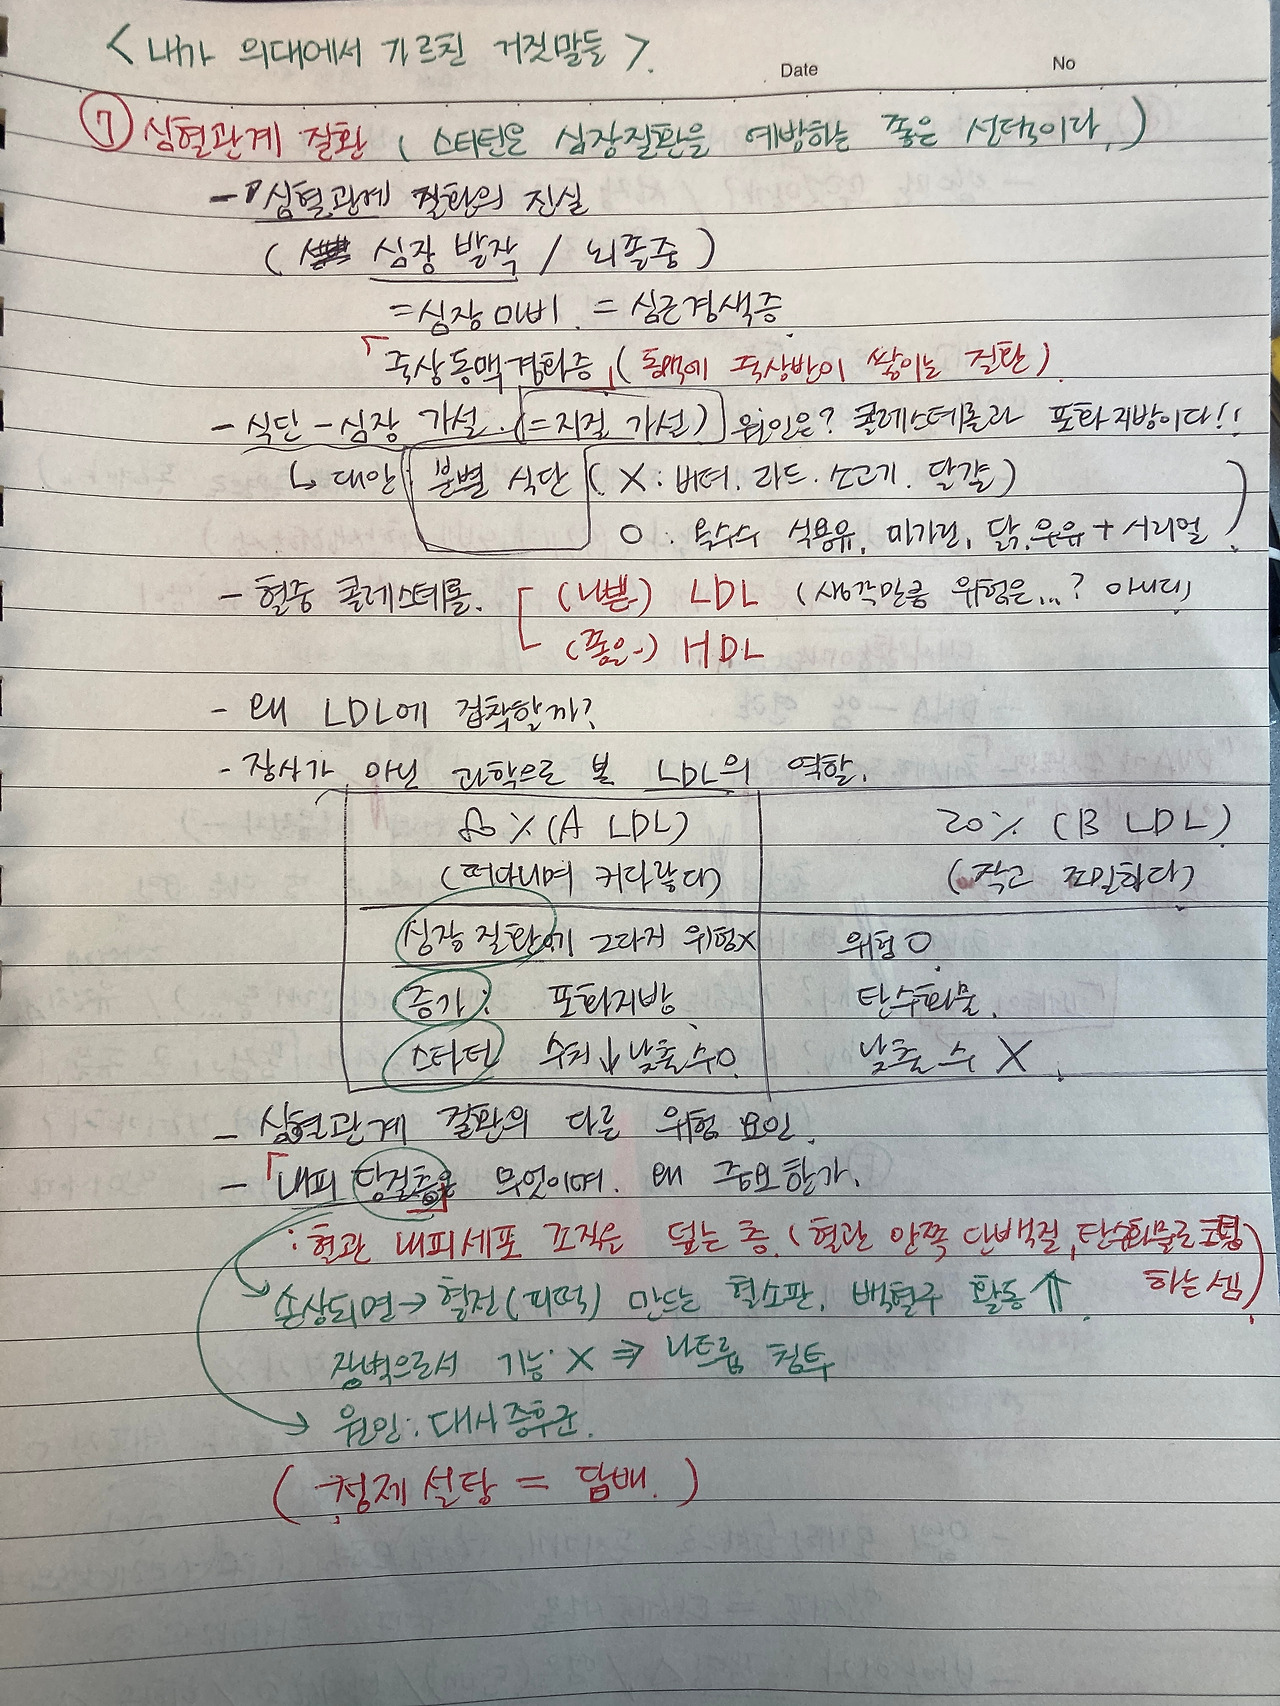 < 내가 의대에서 가르친 거짓말들 >.
Date No
⑦ 심혈관계 질환 ( 스타틴은 심장질환을 예방하는 좋은 선택이다. )
- 심혈관계 질환의 진실
( 심장 발작 / 뇌졸중 )
= 심장마비. = 심근경색증.
「죽상동맥경화증」 (동맥에 죽상반이 쌓이는 질환)
- 식단-심장 가설. (=지질 가설) 원인은? 콜레스테롤과 포화지방이다!!
↳ 대안: 분별 식단 ( X : 버터. 라드. 소고기. 달걀 )
O : 옥수수 식용유, 마가린, 닭, 우유 + 시리얼 )
- 혈중 콜레스테롤. (나쁜) LDL (생각만큼 위험은...? 아니다)
(좋은-) HDL
- 왜 LDL에 집착할까?
- 장사가 아닌 과학으로 본 LDL의 역할.
80% (A LDL) 20% (B LDL)
(떠다니며 커다랗다) (작고 조밀하다)
심장 질환에 그다지 위험X 위험 O.
증가: 포화지방. 탄수화물.
스타틴 수치↓ 낮출 수 O. 낮출 수 X.
- 심혈관계 질환의 다른 위험 요인.
- 「내피 당질층」은 무엇이며. 왜 중요한가.
: 혈관 내피세포 조직은 덮는 층. (혈관 안쪽 단백질, 탄수화물로 코팅
하는 셈.)
손상되면 → 혈전(피떡) 만드는 혈소판, 백혈구 활동 ↑.
장벽으로서 기능 X ⇒ 나트륨 침투
원인: 대사증후군.
( 정제 설탕 = 담배. )